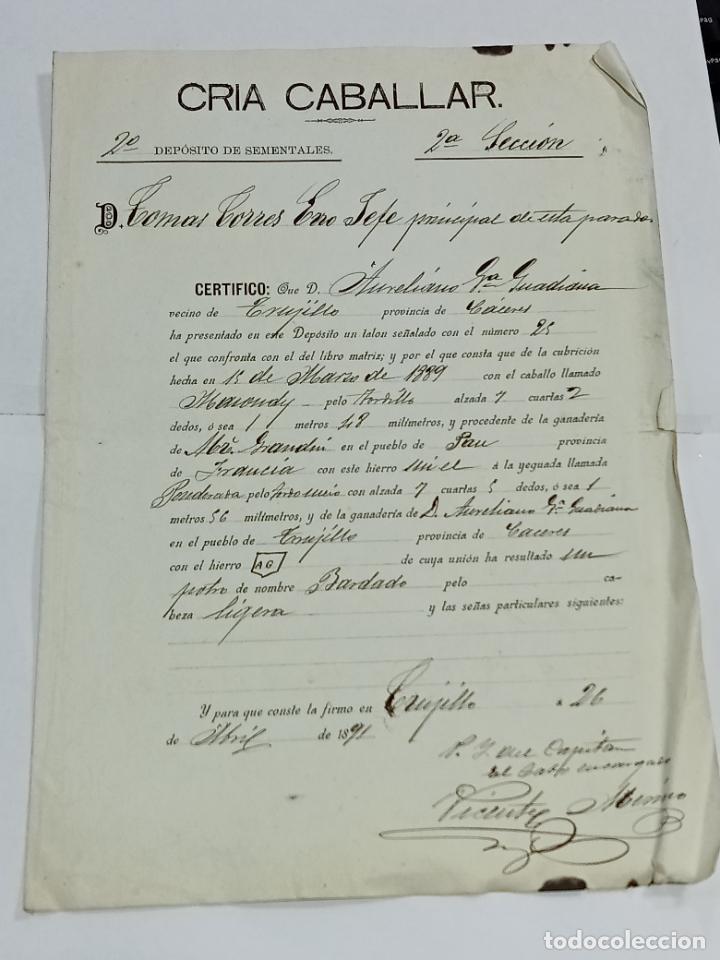 CRIA CABALLAR.
2º DEPÓSITO DE SEMENTALES. 2ª Sección
D. Tomas Torres Jefe principal de esta parada
CERTIFICO: Que D. Aureliano Gª Guadiana
vecino de Trujillo provincia de Cáceres
ha presentado en este Depósito un talon señalado con el número 25
el que confronta con el del libro matriz; y por el que consta que de la cubrición
hecha en 15 de Marzo de 1889 con el caballo llamado
pelo tordillo alzada 7 cuartas 2
dedos, ó sea 1 metros 48 milímetros, y procedente de la ganadería
de Mr. en el pueblo de Pau provincia
de Francia con este hierro á la yeguada llamada
Ponderada pelo con alzada 7 cuartas 5 dedos, ó sea 1
metros 56 milímetros, y de la ganadería de D. Aureliano Gª Guadiana
en el pueblo de Trujillo provincia de Caceres
con el hierro AG de cuya unión ha resultado un
potro de nombre Bardado pelo ca-
beza ligera y las señas particulares siguientes:
Y para que conste la firmo en Trujillo a 26
de Abril de 1891
Capitan
el Cabo encargado
Vicente Merino
todocoleccion
todocoleccion.net